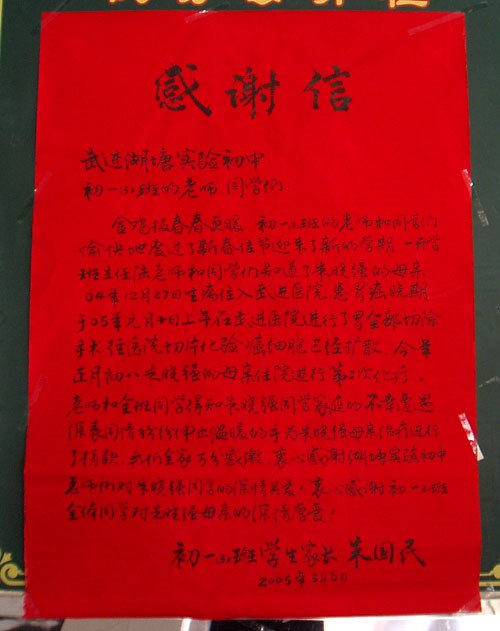 感谢信
武进湖塘实验初中
初一(1)班的老师 同学们:
金鸡报春春更暖 初一(1)班的老师和同学们
愉快地度过了新春佳节迎来了新的学期 一开学
班主任陆老师和同学们知道了朱晓强的母亲
04年12月29日生病住入武进医院 患胃癌晚期
于05年元月 日上午在武进医院进行了胃全部切除
手术 经医院切片化验 癌细胞已经扩散 今年
正月初八朱晓强的母亲住院进行第二次化疗。
老师和全班同学得知朱晓强同学家庭的不幸遭遇
深表同情纷纷伸出温暖的手为朱晓强母亲治疗进行
了捐款.我们全家万分感激 衷心感谢湖塘实验初中
老师们对朱晓强同学的深情 !衷心感谢初一(1)班
全体同学对朱晓强母亲的深情厚意!
初一(1)班学生家长 朱国民
2005年3月 日